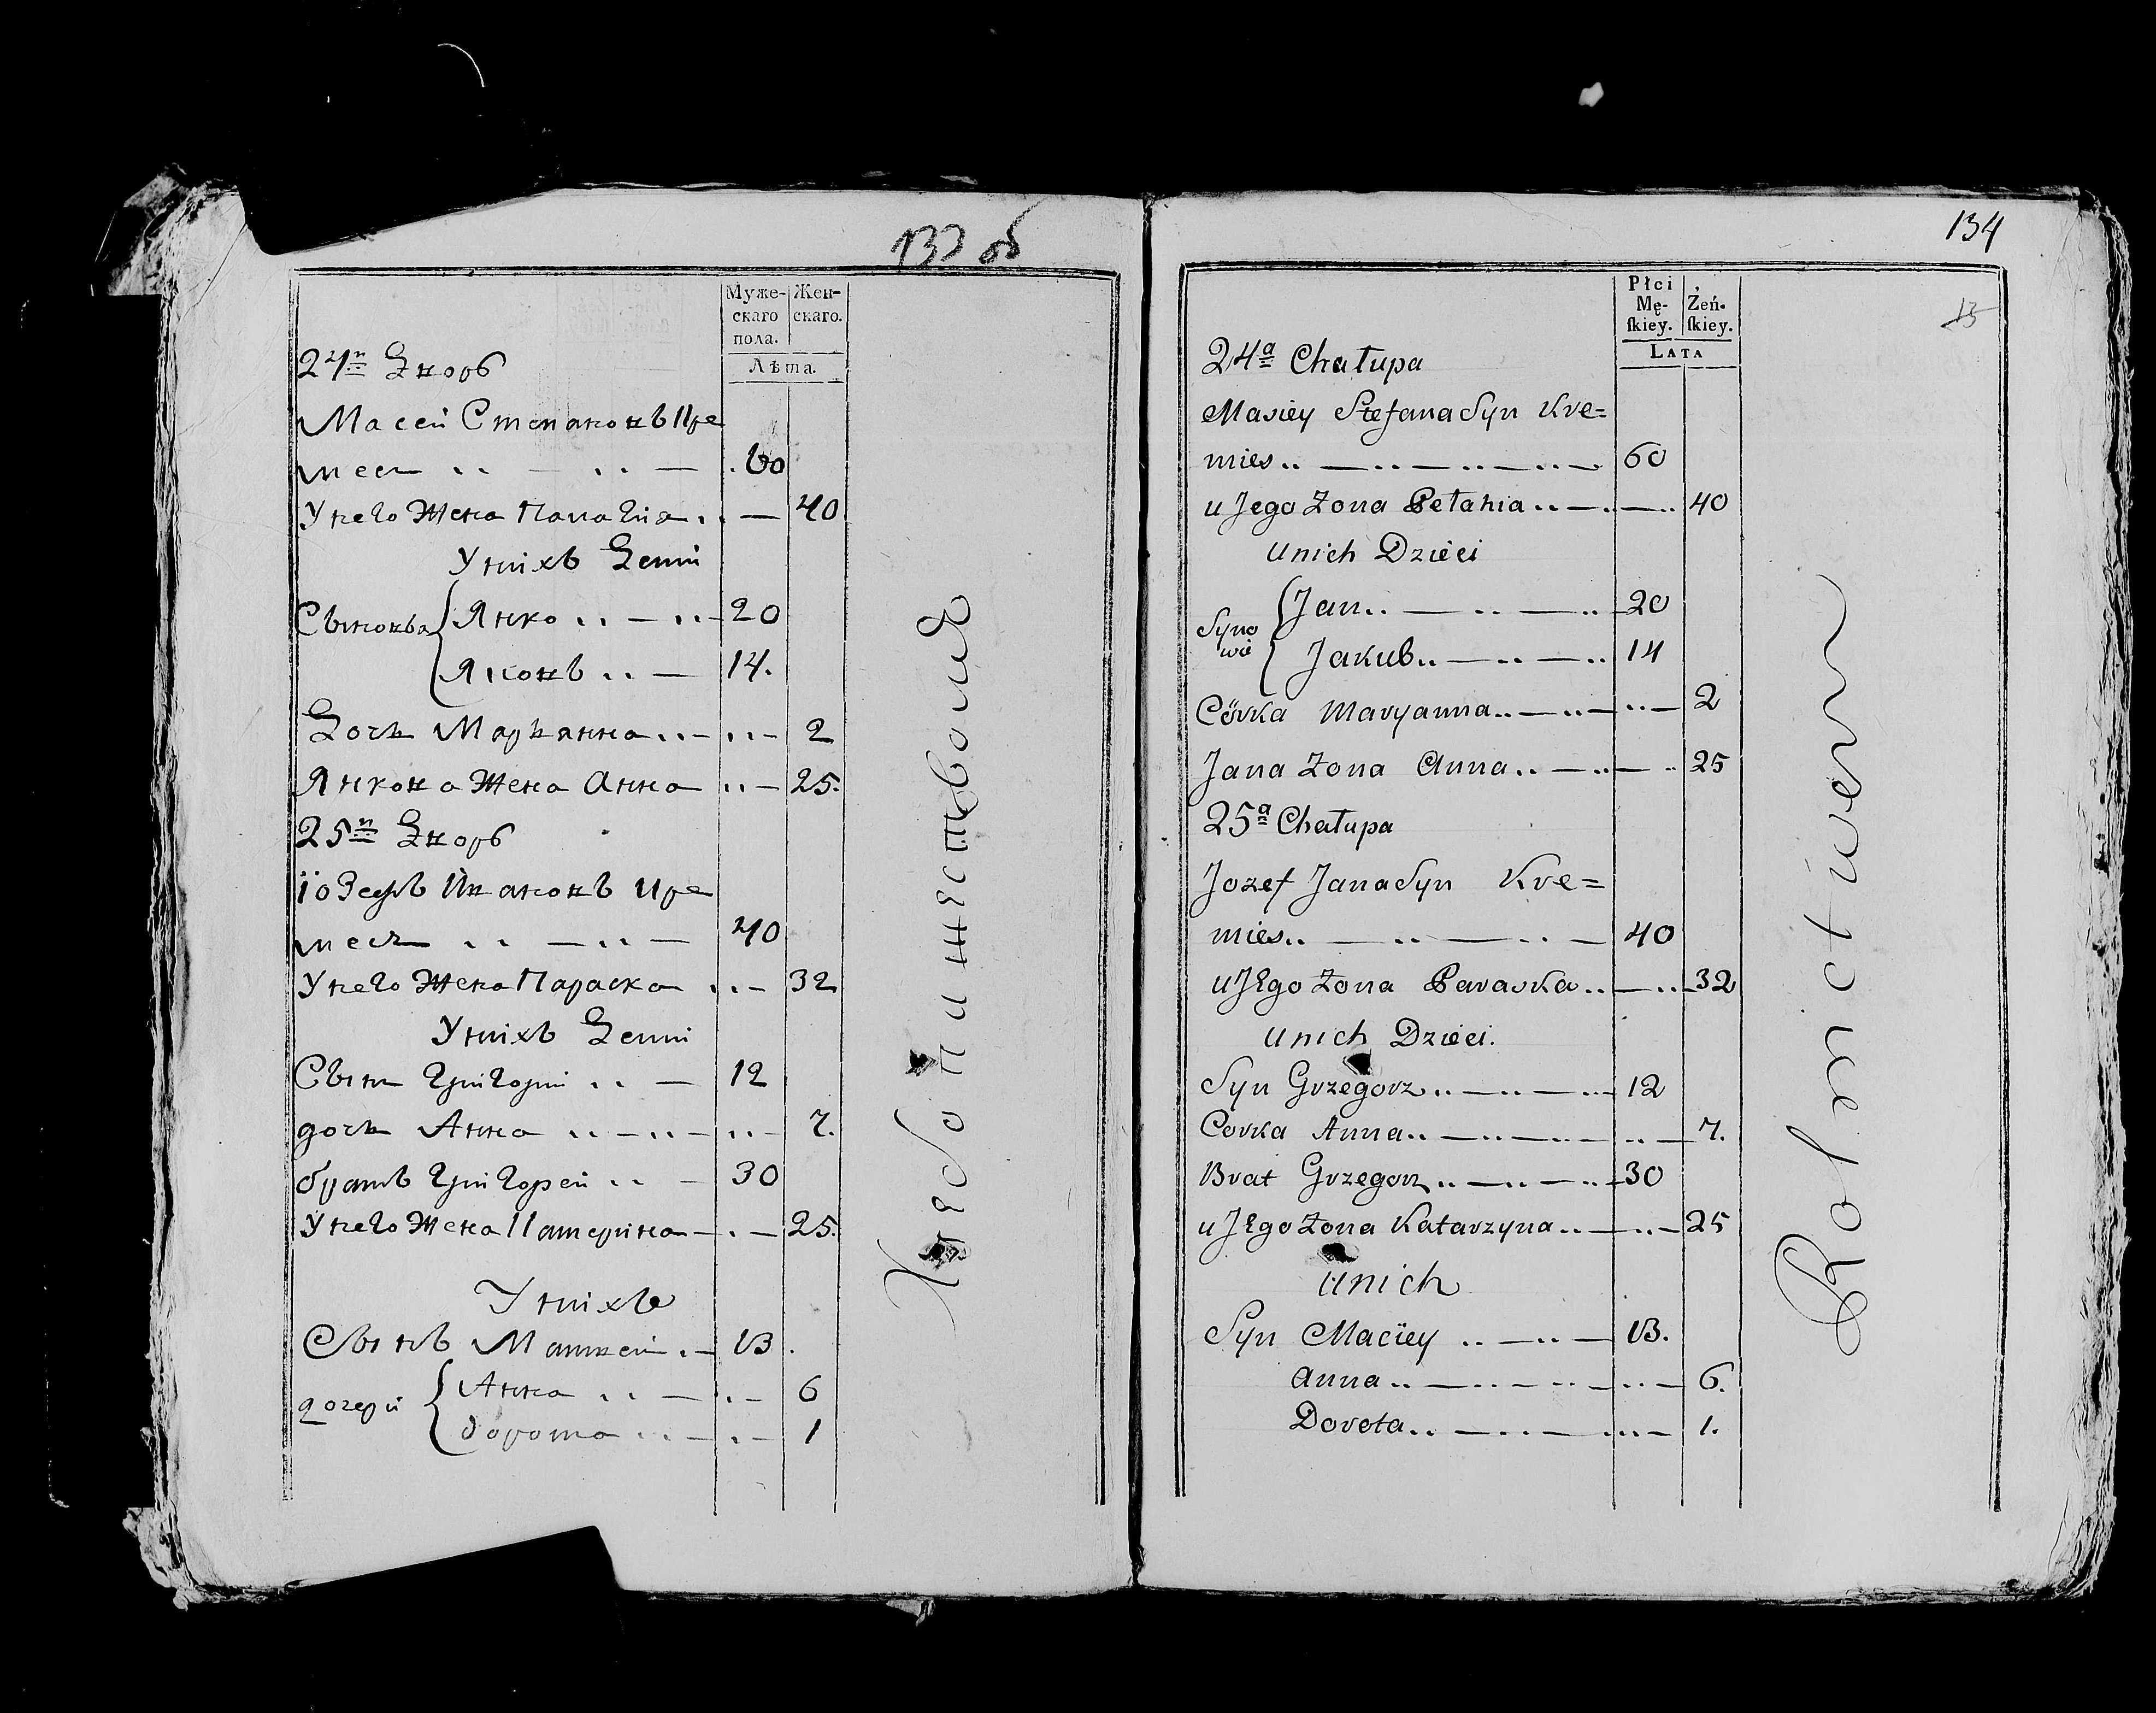 133 об
Муже-
скаго
пола.
Жен-
скаго.
Лѣта.
24й Дворъ
Масей Степановъ Кре
месъ 60
У него Жена Палагия 40
У нихъ Дети
Сыновья Янко 20
Яковъ 14.
Дочь Марьянна 2
Янкова Жена Анна 25.
25й Дворъ
іозефъ Ивановъ Кре
месъ 40
У него Жена Параска 32
У нихъ Дети
Сынъ Григори 12
дочь Анна 7.
братъ Григорей 30
У него Жена Катерина 25.
У нихъ
Сынъ Матвей 13
дочери Анна 6
дорота 1
Хлебопашествомъ
134
13
Płci
Mę-
ſkiey.
Żeń-
ſkiey.
LATA
24a Chałupa
Masiey Stefana Syn Kre=
mies 60
u Jego Zona Pełahia 40
u nich Dzieci
Syno
wie
Jan 20
Jakub 14
Córka Maryanna 2
Jana Zona Anna 25
25a Chałupa
Jozef Jana Syn Kre=
mies 40
u Jego Zona Paraska 32
u nich Dzieci.
Syn Grzegorz 12
Corka Anna 7.
Brat Grzegorz 30
u Jego Zona Katarzyna 25
u nich
Syn Maciey 13.
Anna 6.
Dorota 1.
Rolnictwem